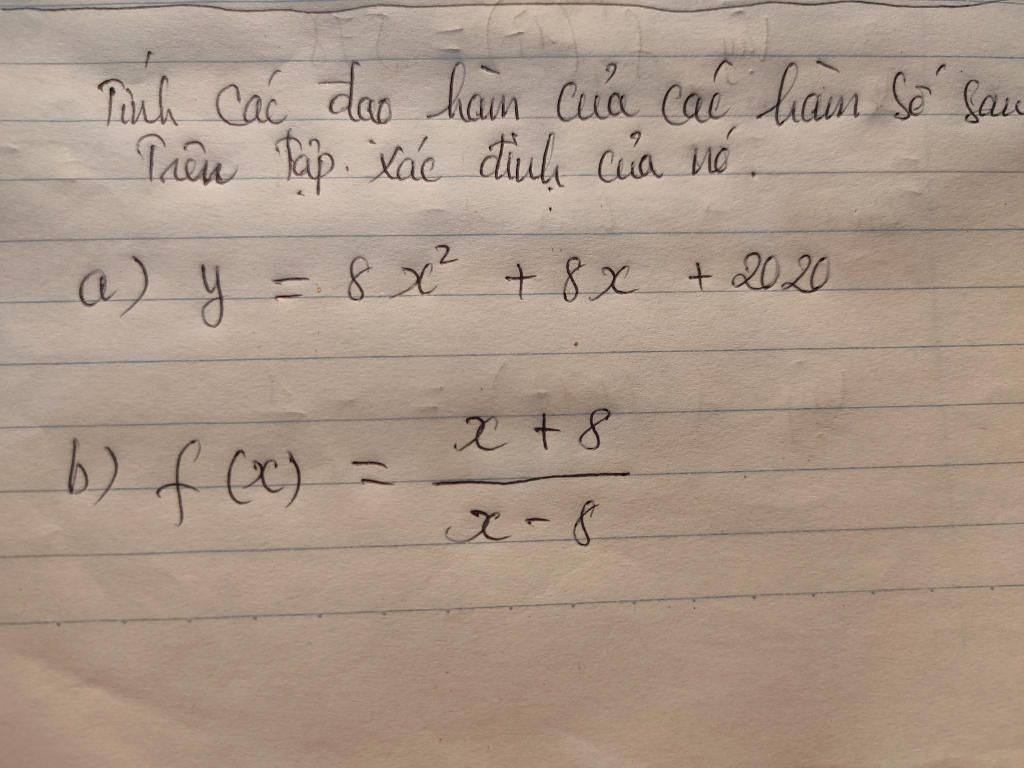 Tính các đạo hàm của các hàm số sau
Trên tập xác định của nó.
a) y = 8x² + 8x + 2020
b) f(x) = x + 8
x - 8